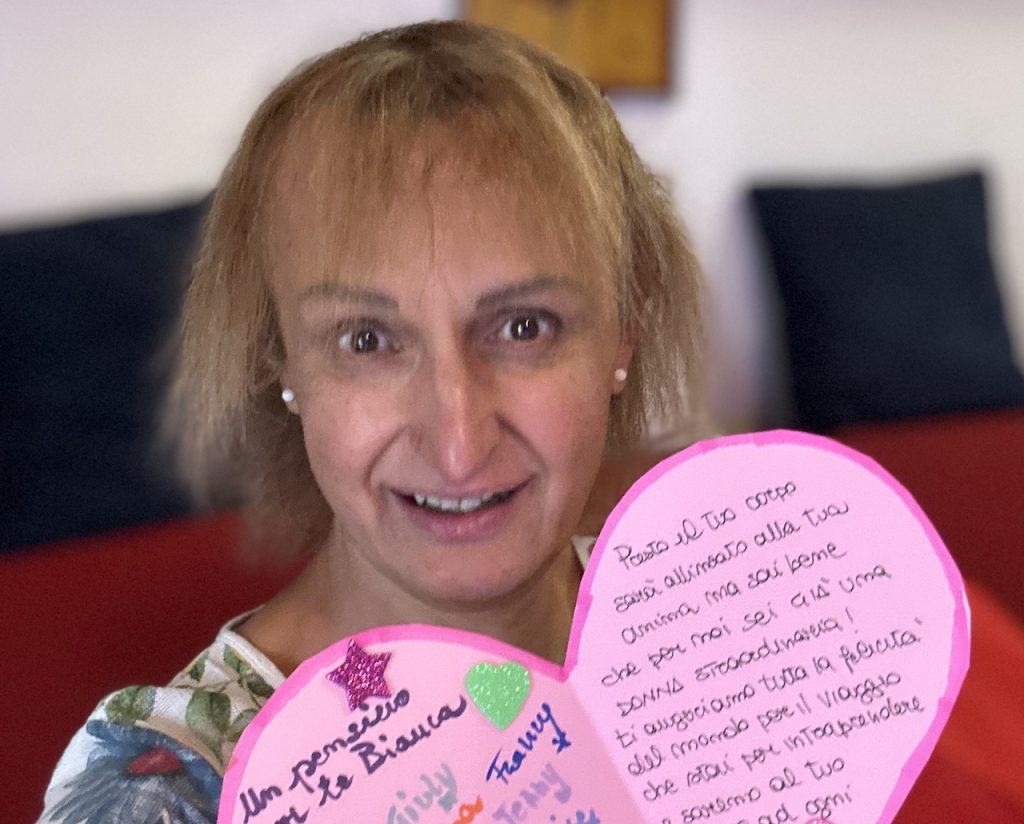 Un pensiero
per te Bianca
Giuly
Franny
Jenny
Presto il tuo corpo
sarà allineato alla tua
anima ma sai bene
che per noi sei GIÀ una
DONNA straordinaria!
ti auguriamo tutta la felicità
del mondo per il viaggio
che stai per intraprendere
e saremo al tuo
ad ogni